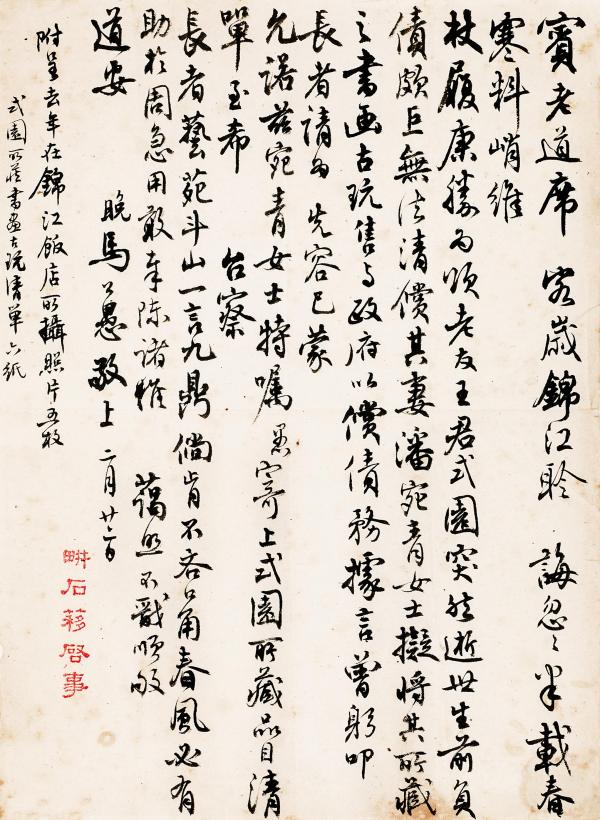 賓老道席 客歲錦江聆 誨忽々半載春
寒料峭維
杖履康勝為頌老友王君式園突然逝世生前負
債頗巨無法清償其妻潘宛青女士擬將其所藏
之書画古玩售与政府以償債務據言曾躬叩
長者請為 先容已蒙
允諾茲宛青女士特囑 愚寄上式園所藏品目清
單至希 台察
長者藝苑斗山一言九鼎倘肯不吝口角春風必有
助於周急用敢奉陳諸維 藹照不戩順頌
道安
晚馬公愚敬上 二月廿六日
附呈去年在錦江飯店所攝照片五枚
式園所藏書画古玩清單六紙
畊石簃啓事